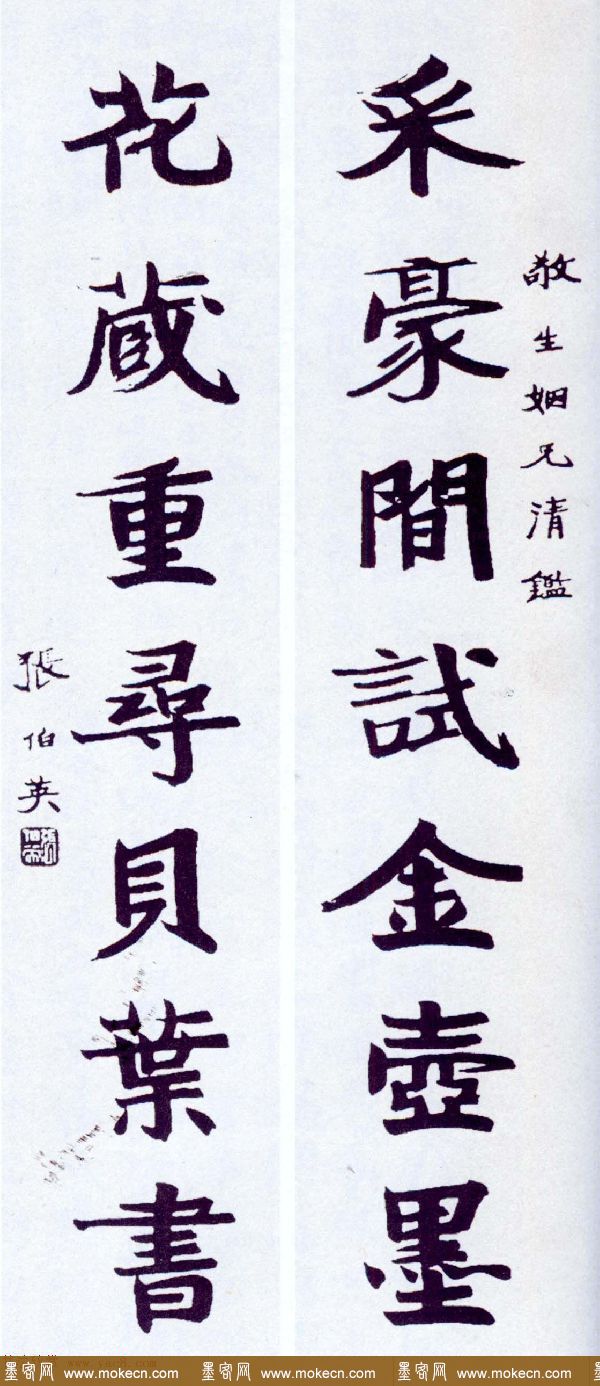 敬生姻兄清鑑
采豪間試金壺墨
花蔵重尋貝葉書
張伯英
墨客网 www.mokecn.com 墨客网 www.mokecn.com 墨客网 www.mokecn.com